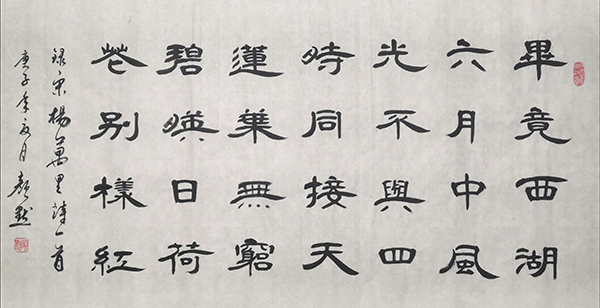 畢竟西湖
六月中風
光不與四
時同接天
蓮葉無窮
碧暎日荷
花别樣紅
録宋楊萬里詩一首
庚子年夏月顏默